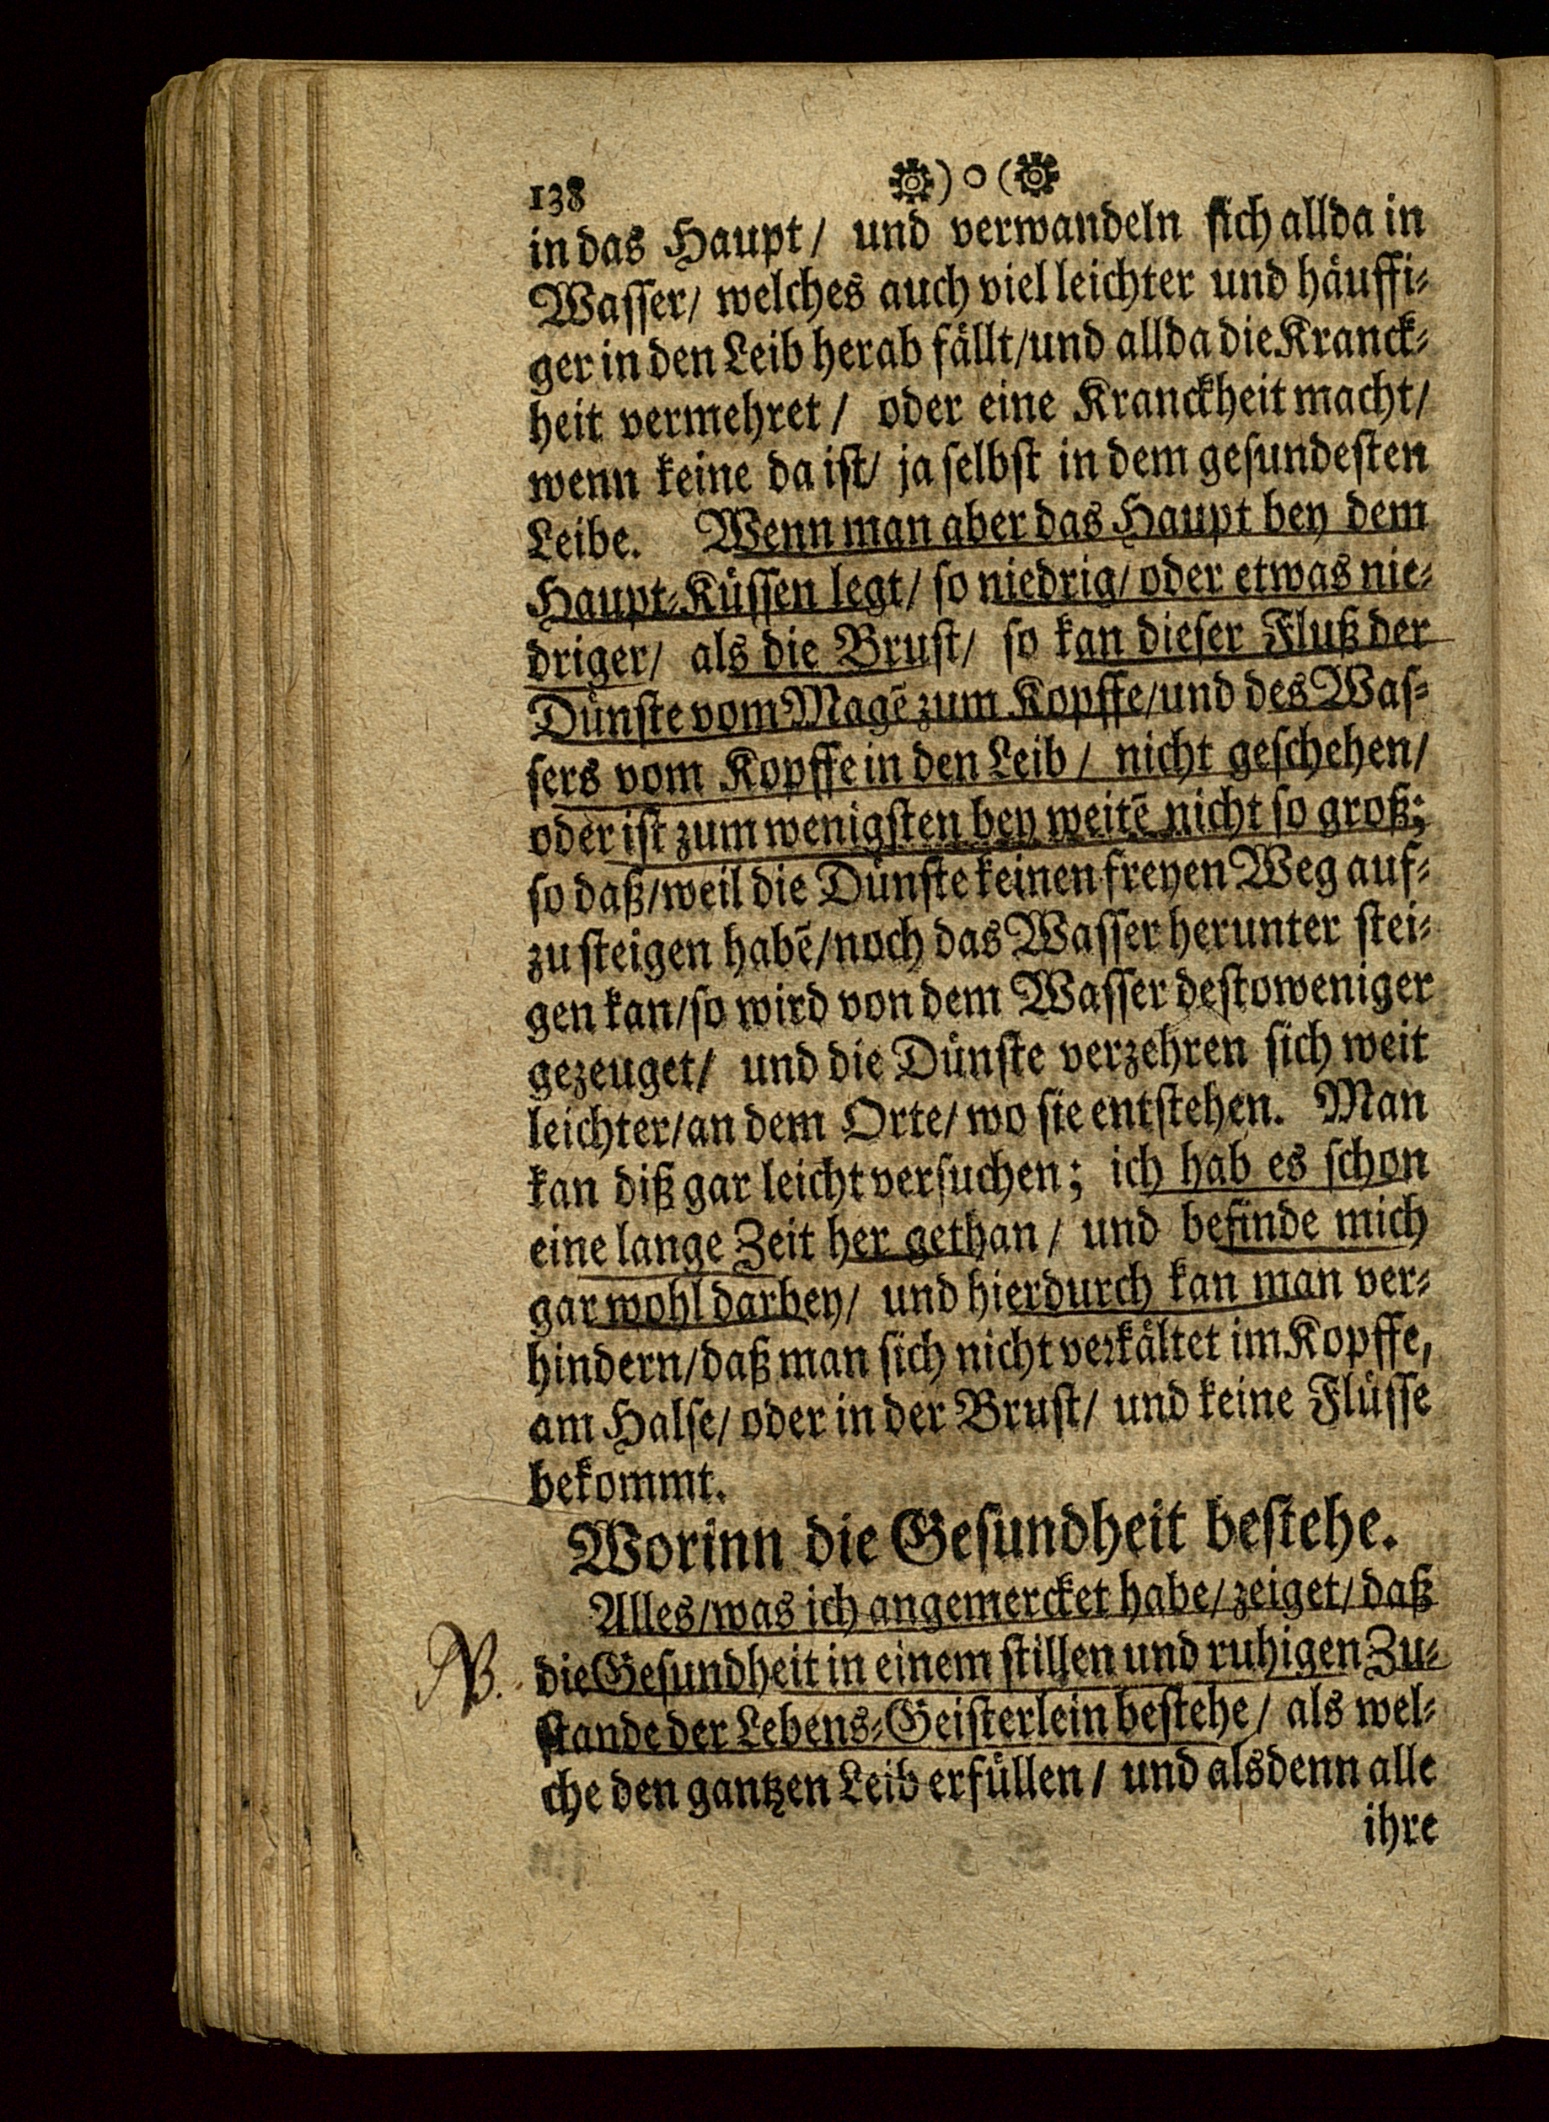 138 ❁)o(❁
in das Haupt/ und verwandeln sich allda in
Wasser/ welches auch viel leichter und häuffi-
ger in den Leib herab fällt/und allda die Kranck-
heit vermehret/ oder eine Kranckheit macht/
wenn keine da ist/ ja selbst in dem gesundesten
Leibe. Wenn man aber das Haupt bey dem
Haupt-Küssen legt/ so niedrig/ oder etwas nie-
driger/ als die Brust/ so kan dieser Fluß der
Dünste vom Magē zum Kopffe/und des Was-
sers vom Kopffe in den Leib/ nicht geschehen/
oder ist zum wenigsten bey weitē nicht so groß;
so daß/weil die Dünste keinen freyen Weg auf-
zu steigen habē/noch das Wasser herunter stei-
gen kan/so wird von dem Wasser destoweniger
gezeuget/ und die Dünste verzehren sich weit
leichter/an dem Orte/ wo sie entstehen. Man
kan diß gar leicht versuchen; ich hab es schon
eine lange Zeit her gethan/ und befinde mich
gar wohl darbey/ und hierdurch kan man ver-
hindern/daß man sich nicht verkältet im Kopffe,
am Halse/ oder in der Brust/ und keine Flüsse
bekommt.
Worinn die Gesundheit bestehe.
Alles/was ich angemercket habe/zeiget/daß
NB. die Gesundheit in einem stillen und ruhigen Zu-
stande der Lebens-Geisterlein bestehe/ als wel-
che den gantzen Leib erfüllen/ und alsdenn alle
ihre